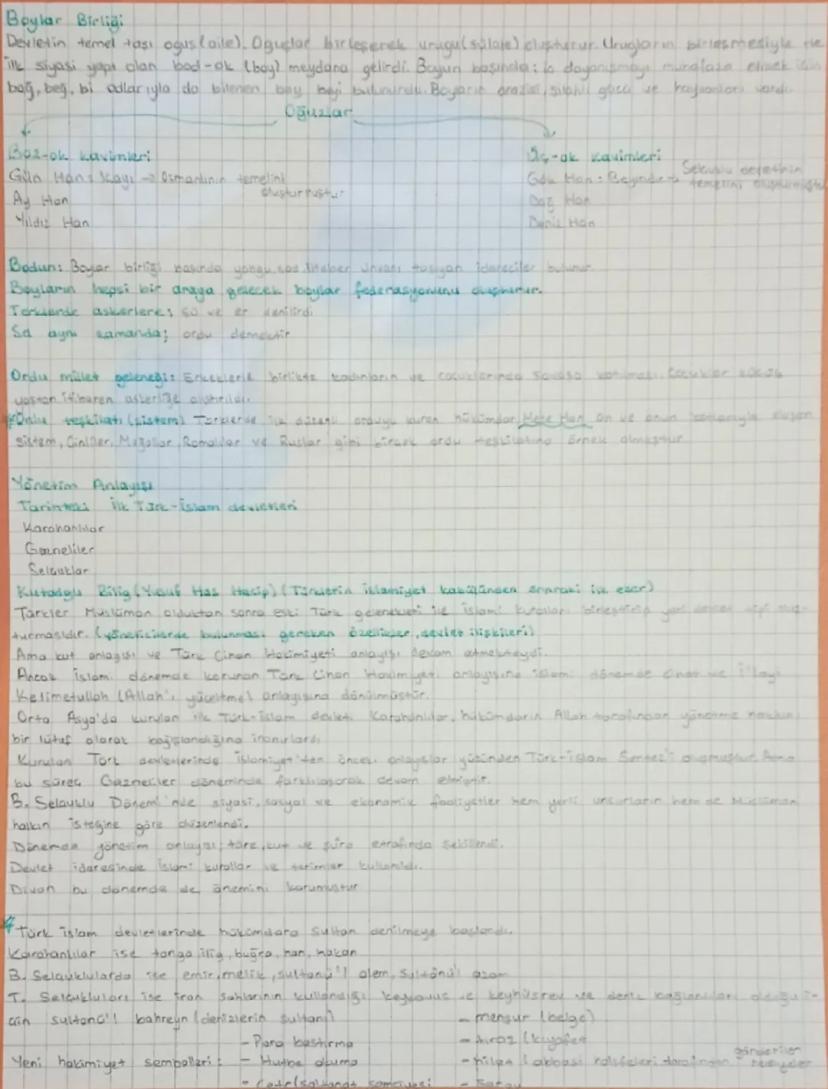 Boylar Birliği
Devletin temel taşı oguş (aile). Oguşlar birleşerek urugu (sülale) oluşturur. Urugların birleşmesiyle de
ilk siyasi yapı olan bod-ok (boy) meydana gelirdi. Boyun başında; iç dayanışmayı muhafaza etmek için
bağ, beğ, bi adlarıyla da bilenen boy beyi bulunurdu. Boyların arazisi, silahlı gücü ve hayvanları vardı.
Oğuzlar
Boz-ok kavimleri
Üç-ok kavimleri
Gün Han: Kayı → Osmanlının temelini oluşturmuştur
Gök Han: Beyindir → Selçuklu devletinin temelini oluşturmuştu
Ay Han
Dağ Han
Yıldız Han
Deniz Han
Bodun: Boylar birliği başında yabgu, şad, ilteber ünvanı taşıyan idareciler bulunur.
Boyların hepsi bir araya gelecek boylar federasyonunu oluşturur.
Türklerde askerlere; sü ve er denilirdi
Sü aynı zamanda; ordu demektir
Ordu millet geleneği: Erkeklerle birlikte kadınların ve çocuklarında savaşa katılması. Çocuklar küçük
yaştan itibaren askerliğe alıştırıldı.
Ordu teşkilatı (sistem) Türklerde ilk düzenli orduyu kuran hükümdar Mete Han. On ve onun katlarıyla oluşan
sistem, Çinliler, Moğollar, Romalılar ve Ruslar gibi birçok ordu teşkilatına örnek olmuştur
Yönetim Anlayışı
Tarihteki ilk Türk-İslam devletleri
Karahanlılar
Gazneliler
Selçuklar
Kutadgu Bilig (Yusuf Has Hacip) (Türklerin İslamiyet kabülünden sonraki ilk eser)
Türkler Müslüman olduktan sonra eski Türk gelenekleri ile İslami kuralları birleştirip yeni devlet
turmasıdır. (yöneticilerde bulunması gereken özellikler, devlet ilişkileri)
Ama kut anlayışı ve Türk Cihan Hakimiyeti anlayışı devam etmekteydi.
Ancak İslami dönemde korunan Türk Cihan Hakimiyeti anlayışına İslami dönemde cihat ve i'layı
Kelimetullah (Allah'ı yüceltme) anlayışına dönülmüştür.
Orta Asya'da kurulan ilk Türk-İslam devleti Karahanlılar, hükümdarın Allah tarafından yönetme hakkını
bir lütuf olarak bağışlandığına inanırlardı
Kurulan Türk devletlerinde İslamiyet'ten önceki anlayışlar yüzünden Türk-İslam Sentezi oluşmuştur. Ama
bu süreç Gazneliler döneminde farklılaşarak devam etmiştir.
B. Selçuklu Dönemi'nde siyasi, sosyal ve ekonomik faaliyetler hem yerli unsurların hem de Müslüman
halkın isteğine göre düzenlendi.
Dönemdn yönetim anlayışı; töre, kut ve şura etrafında şekillendi.
Devlet idaresinde İslami kurallar ve terimler kullanıldı.
Divan bu dönemde de önemini korumuştur
Türk İslam devletlerinde hükümdara Sultan denilmeye başlandı.
Karahanlılar ise tonga ilig, buğra, han, hakan
B. Selçuklularda ise emir, melik, sultanü'l alem, sultanü'l azam
T. Selçukluları ise İran şahlarının kullandığı keykavus ve keyhüsrev ve deniz bağlantıları olduğu i-
çin sultanü'l bahreyn (denizlerin sultanı)
Yeni hakimiyet sembolleri:
- Para bastırma
- Hutbe okuma
- Çetir
- menşur (belge)
- tıraz (kıyafet
- hilat (abbasi halifeleri tarafından gönderilen hediyeler
- Saray